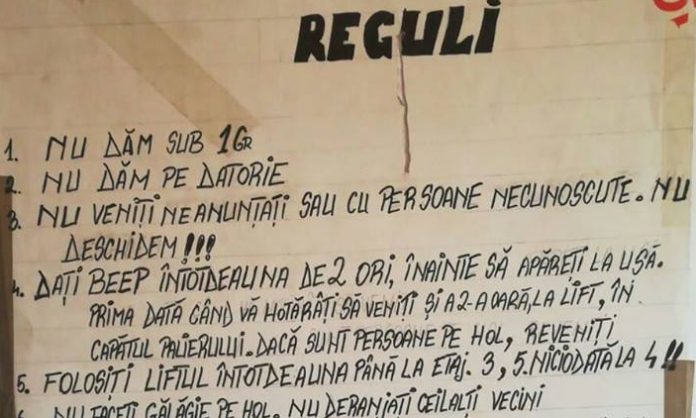 REGULI
1. NU DĂM SUB 1Gr
2. NU DĂM PE DATORIE
3. NU VENIȚI NEANUNȚAȚI SAU CU PERSOANE NECUNOSCUTE. NU
DESCHIDEM!!!
4. DAȚI BEEP ÎNTOTDEAUNA DE 2 ORI, ÎNAINTE SĂ APĂREȚI LA UȘĂ.
PRIMA DATĂ CÂND VĂ HOTĂRÂȚI SĂ VENIȚI ȘI A 2-A OARĂ, LA LIFT, ÎN
CAPĂTUL PALIERULUI. DACĂ SUNT PERSOANE PE HOL, REVENIȚI
5. FOLOSIȚI LIFTUL ÎNTOTDEAUNA PÂNĂ LA ETAJ. 3, 5. NICIODATĂ LA 4!!
6. NU FACEȚI GĂLĂGIE PE HOL. NU DERANJAȚI CEILALȚI VECINI